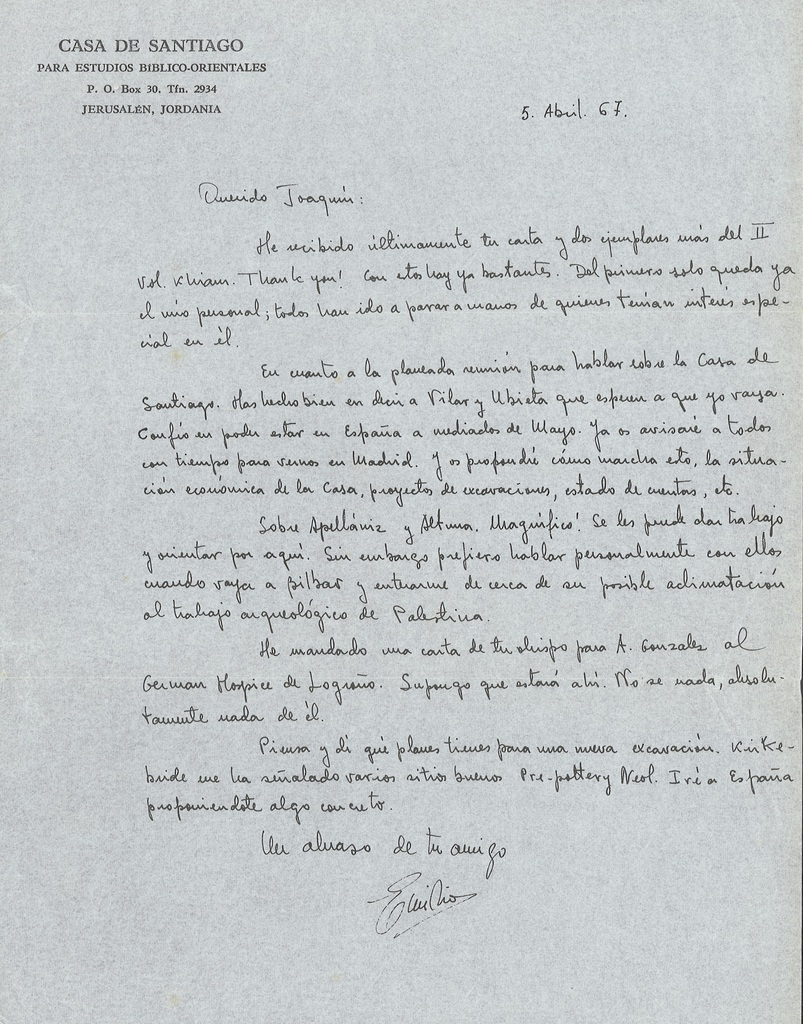 CASA DE SANTIAGO
PARA ESTUDIOS BIBLICO-ORIENTALES
P. O. Box 30. Tfn. 2934
JERUSALÉN, JORDANIA
5. Abril. 67.
Querido Joaquín:
He recibido últimamente tu carta y dos ejemplares más del II
vol. Khiam. Thank you! Con estos hay ya bastantes. Del primero solo queda ya
el mío personal; todos han ido a parar a manos de quienes tenían interés espe-
cial en él.
En cuanto a la planeada reunión para hablar sobre la Casa de
Santiago. Has hecho bien en decir a Vilar y Ubieta que esperen a que yo vaya.
Confío en poder estar en España a mediados de Mayo. Ya os avisaré a todos
con tiempo para vernos en Madrid. Y os propondré cómo marcha esto, la situa-
ción económica de la Casa, proyectos de excavaciones, estado de cuentas, etc.
Sobre Apellániz y Altuna. Magnífico! Se les puede dar trabajo
y orientar por aquí. Sin embargo prefiero hablar personalmente con ellos
cuando vaya a Bilbao y enterarme de cerca de su posible aclimatación
al trabajo arqueológico de Palestina.
He mandado una carta de tu obispo para A. Gonzalez al
German Hospice de Logroño. Supongo que estará ahí. No se nada, absolu-
tamente nada de él.
Piensa y di qué planes tienes para una nueva excavación. Kirke-
bride me ha señalado varios sitios buenos Pre-pottery Neol. Iré a España
proponiendote algo concreto.
Un abrazo de tu amigo
Emilio